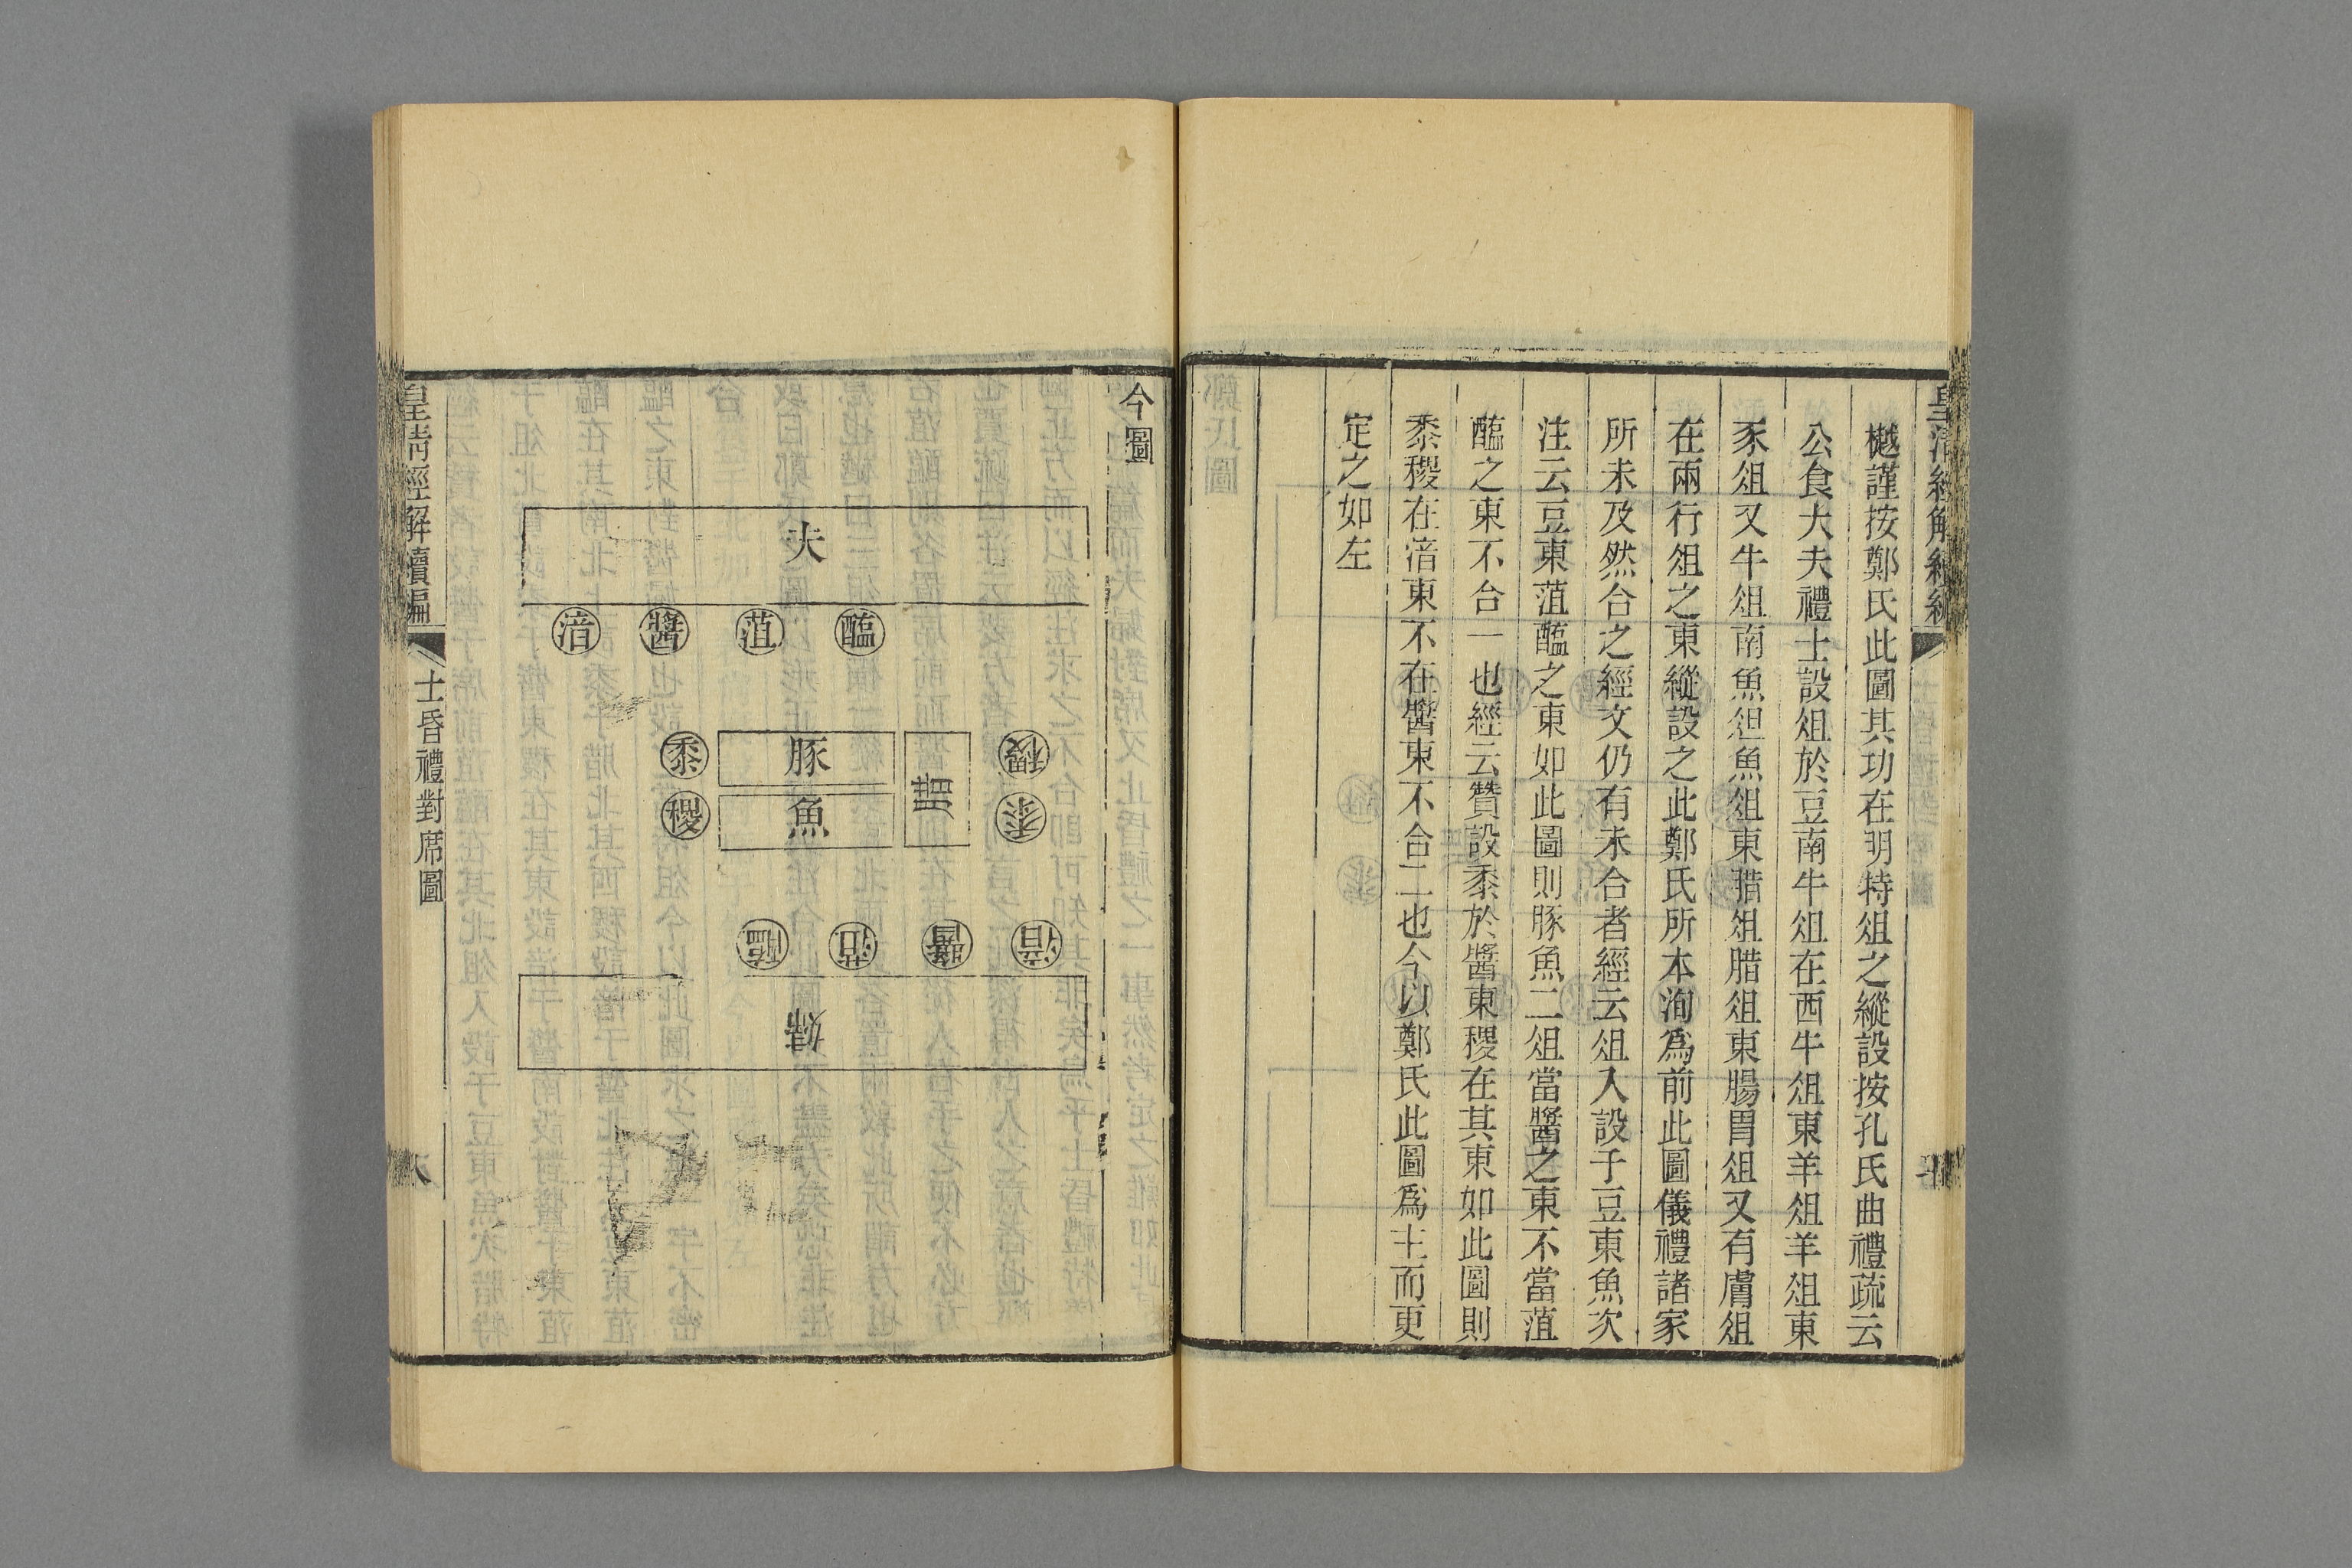 樾謹按鄭氏此圖其功在明特俎之縱設按孔氏曲禮疏云
公食大夫禮士設俎於豆南牛俎在西牛俎東羊俎羊俎東
豕俎又牛俎南魚俎魚俎東腊俎腊俎東腸胃俎又有膚俎
在兩行俎之東縱設之此鄭氏所本洵爲前此圖儀禮諸家
所未及然合之經文仍有未合者經云俎入設于豆東魚次
注云豆東菹醢之東如此圖則豚魚二俎當醬之東不當菹
醢之東不合一也經云贊設黍於醬東稷在其東如此圖則
黍稷在湆東不在醬東不合二也今以鄭氏此圖爲主而更
定之如左
今圖
夫
湆 醬 菹 醢
黍 豚 腊 稷
稷 魚 黍
醢 菹 醬 湆
婦
皇清經解續編
士昏禮對席圖